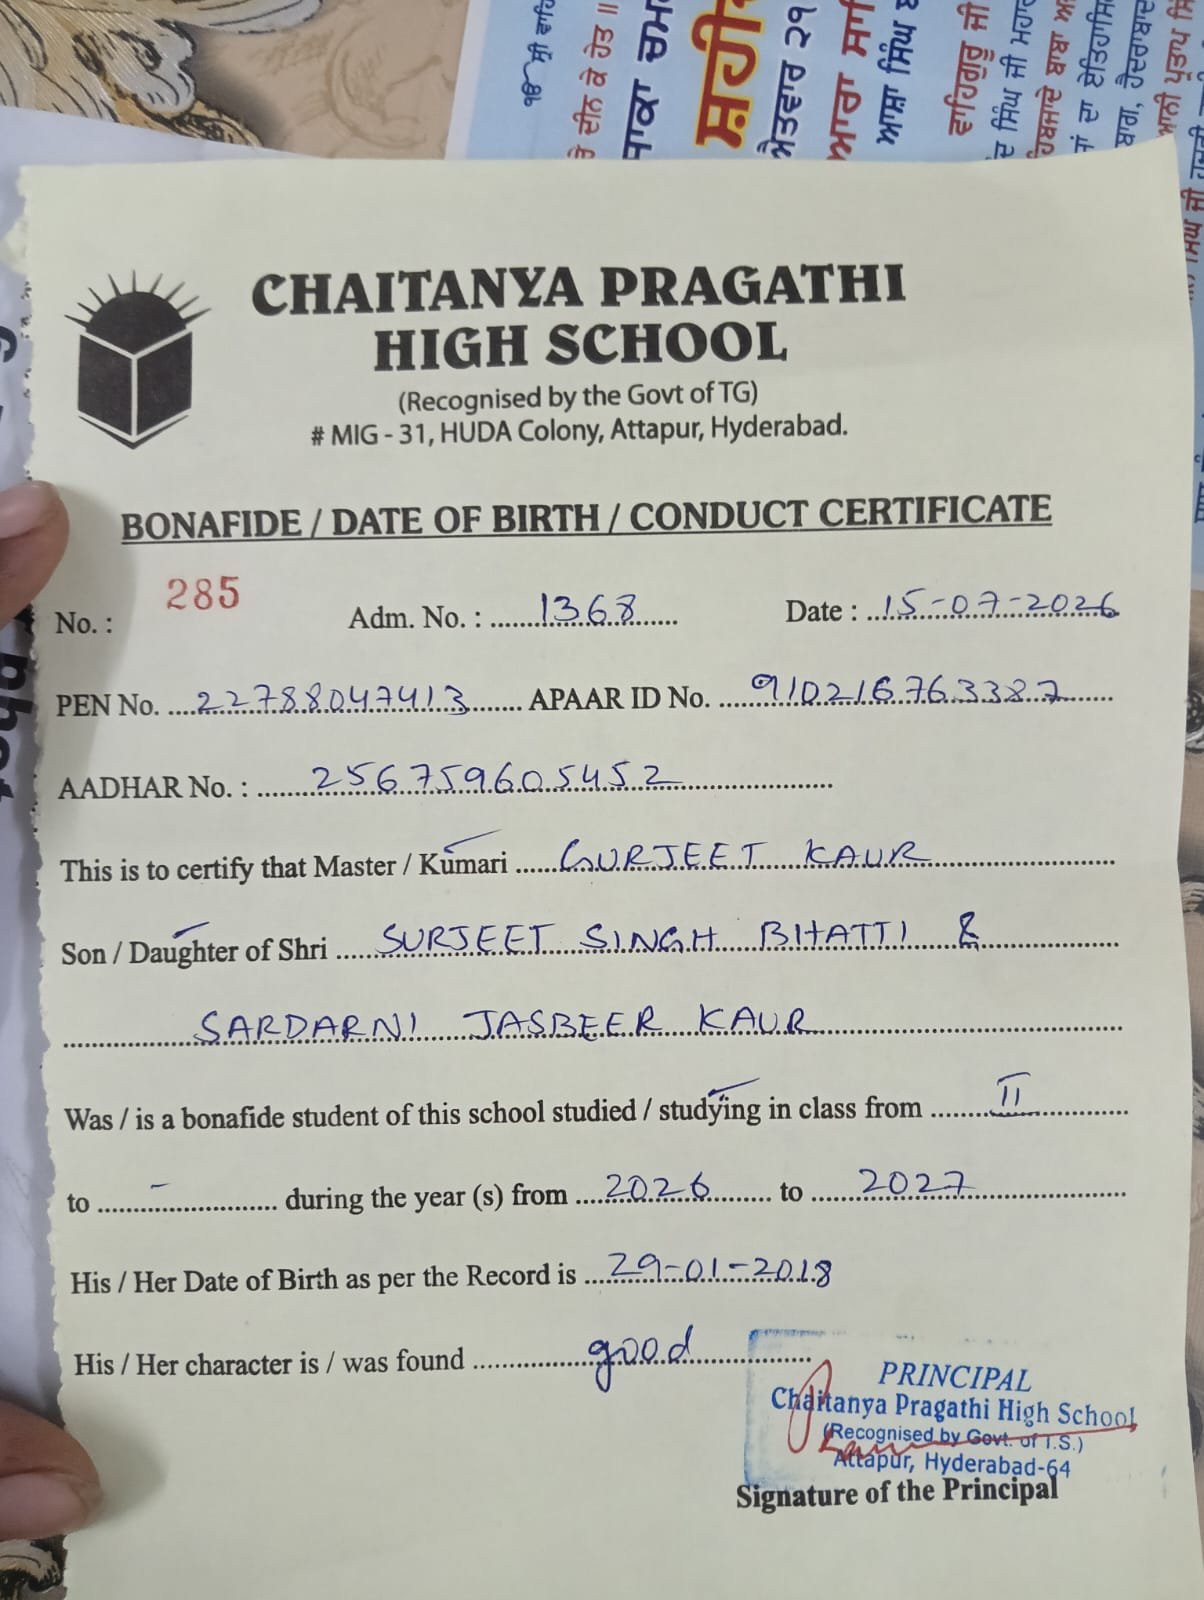 CHAITANYA PRAGATHI
HIGH SCHOOL
(Recognised by the Govt of TG)
# MIG - 31, HUDA Colony, Attapur, Hyderabad.
BONAFIDE / DATE OF BIRTH / CONDUCT CERTIFICATE
No. : 285 Adm. No. : 1368 Date : 15-07-2026
PEN No. 22788047413 APAAR ID No. 910216763387
AADHAR No. : 256759605452
This is to certify that Master / Kumari GURJEET KAUR
Son / Daughter of Shri SURJEET SINGH BHATTI &
SARDARNI JASBEER KAUR
Was / is a bonafide student of this school studied / studying in class from II
to - during the year (s) from 2026 to 2027
His / Her Date of Birth as per the Record is 29-01-2018
His / Her character is / was found good
PRINCIPAL
Chaitanya Pragathi High School
(Recognised by Govt. of T.S.)
Attapur, Hyderabad-64
Signature of the Principal